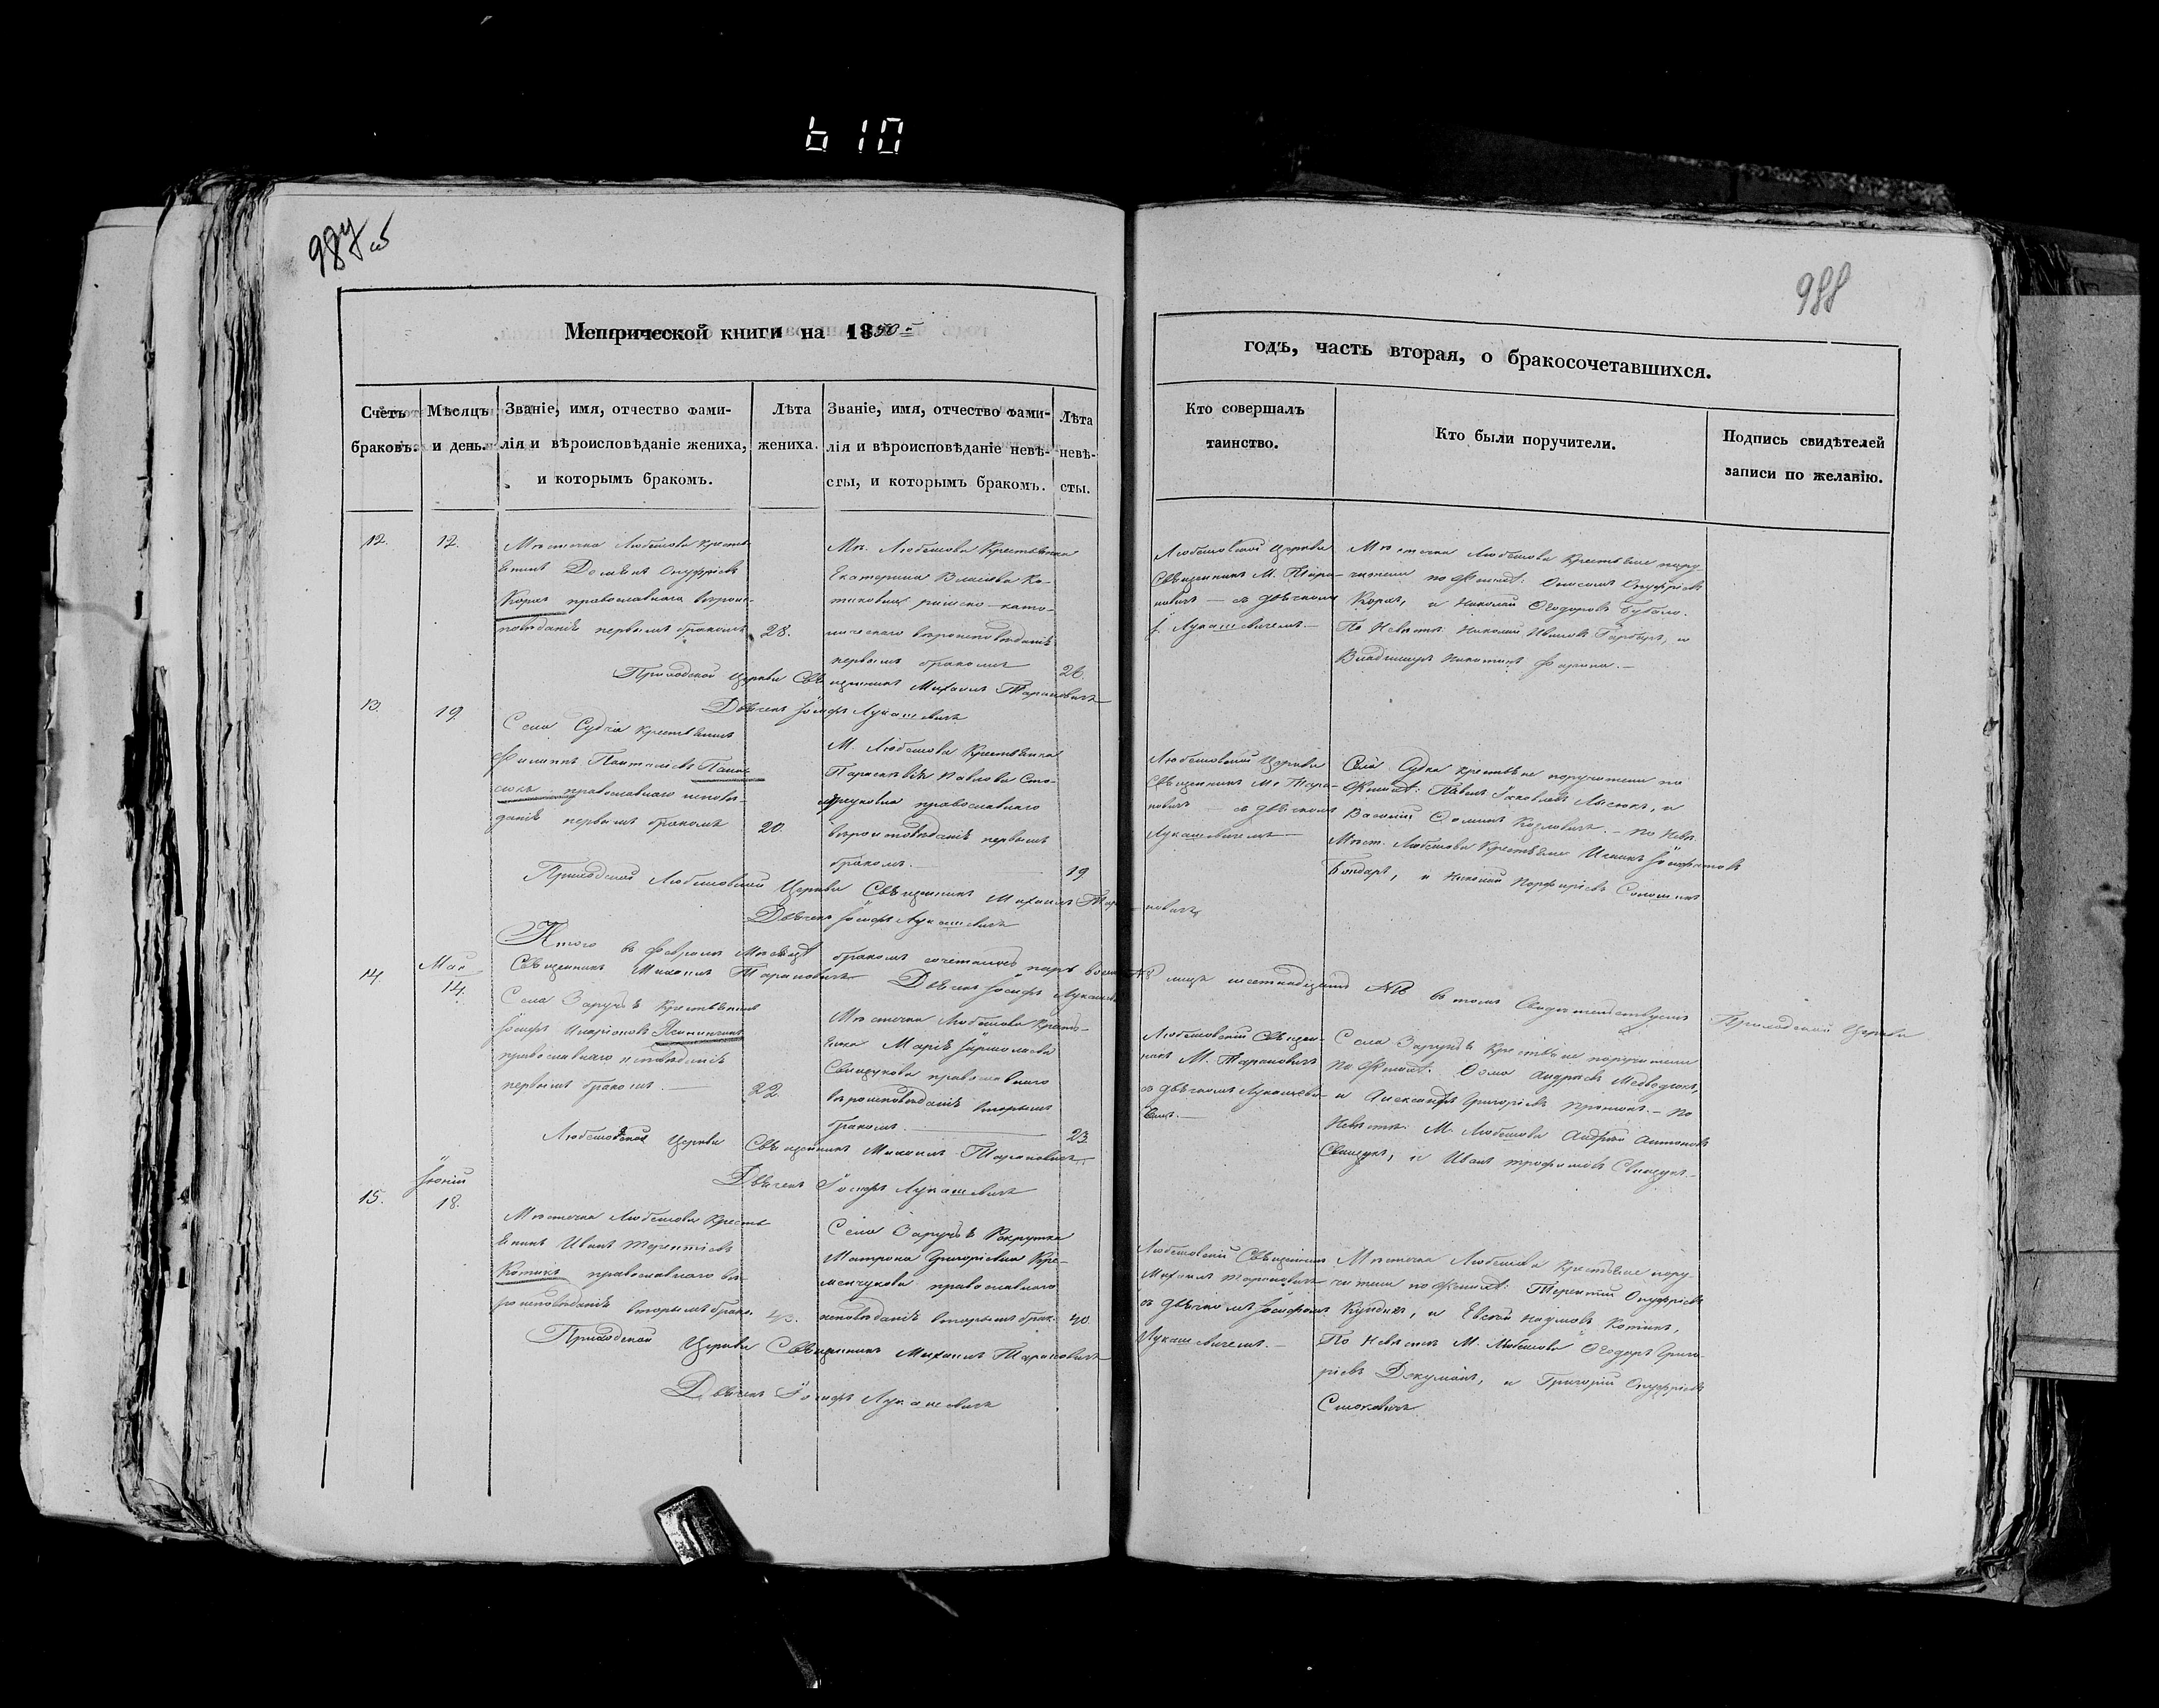 610
987 об
988
Метрической книги на 1850 й
годъ, часть вторая, о бракосочетавшихся.
Счетъ браковъ.
Мѣсяцъ и день.
Званіе, имя, отчество фами-
лія и вѣроисповѣданіе жениха,
и которымъ бракомъ.
Лѣта
жениха.
Званіе, имя, отчество фами-
лія и вѣроисповѣданіе невѣ-
сты, и которымъ бракомъ.
Лѣта
невѣ-
сты.
Кто совершалъ
таинство.
Кто были поручители.
Подпись свидѣтелей
записи по желанію.
12.
12.
Мѣстечка Любешова кресть-
янинъ Онуфріевъ
Корхъ православнаго вѣроис-
повѣданія первымъ бракомъ
28.
Мѣ. Любешова Крестьянка
Екатерина Власіова Ко-
тиковна римско-като-
лическаго вѣроисповѣданія
первымъ бракомъ
26.
Любешовской Церкви
Священникъ М. Тара-
новичъ — съ дьячкомъ
І. Лукашевичемъ.—
Мѣстечка Любешова Крестьяне пору-
чители по Женихѣ: Онуфріевъ
Корхъ, и Николай Ѳеодоровъ
По Невѣстѣ: Николай Ивановъ и
Владимиръ
Приходской Церкви Священникъ Михаилъ Тарановичъ
Дьячекъ Іосифъ Лукашевичъ
13.
19
Села Судчя крестьянинъ
Филиппъ Пантелеевъ
православнаго исповѣ-
данія первымъ бракомъ
20.
М. Любешова Крестьянка
Параскевія Павлова
православнаго
вѣроисповѣданія первымъ
бракомъ.—
19
Любешовской Церкви
Священникъ М. Тара-
новичъ — съ дьячкомъ
Лукашевичемъ—
Села Судча крестьяне поручители по
Женихѣ: Павелъ Яковлевъ Лысюкъ, и
Василій Козловичъ. — По Невѣ.
Мѣст. Любешова Крестьяне Іосифатовъ
Бондаръ, и Николай Порфиріевъ
Приходской Любешовской Церкви Священникъ Михаилъ Тарановичъ
Дьячекъ Іосифъ Лукашевичъ
Итого въ Февралѣ Мѣсяцѣ бракомъ сочеталось паръ восемь №8 лицъ шестнадцать №16 въ томъ Свидѣтельствуемъ Приходской Церкви
Священникъ Михаилъ Тарановичъ Дьячекъ Іосифъ Лукашевичъ
14.
Мая
14.
Села Заруддя Крестьянинъ
Іосифъ Иларіоновъ
православнаго исповѣданія
первымъ бракомъ.—
22.
Мѣстечка Любешова Кресть-
янка Марія Іярмолаева
Свищукова православнаго
вѣроисповѣданія вторымъ
бракомъ.—
23.
Любешовскій Священ-
никъ М. Тарановичъ
съ дьячкомъ Лукашеви-
чемъ.—
Села Заруддя Крестьяне поручители
по Женихѣ: Ѳома Андреевъ Медведюкъ,
и Александръ Григоріевъ — По
Невѣстѣ: М. Любешова Андрей Антоновъ
Свищукъ, и Иванъ Трофимовъ Свищукъ.—
Любешовской Церкви Священникъ Михаилъ Тарановичъ
Дьячекъ Іосифъ Лукашевичъ
15.
Іюній
18.
Мѣстечка Любешова Кресть-
янинъ Иванъ Терентіевъ
Котикъ православнаго вѣ-
роисповѣданія вторымъ брако.
43.
Села Заруддя Рекрутка
Матрона Григоріевна Кре-
менчукова православнаго
исповѣданія вторымъ брак.
40.
Любешовскій Священникъ
Михаилъ Тарановичъ
съ дьячкомъ Іосифомъ
Лукашевичемъ.—
Мѣстечка Любешова Крестьяне пору-
чители по Женихѣ: Терентій Онуфріевъ
и Евсѣй Наумовъ Котикъ,
По Невѣстѣ М. Любешова Ѳеодоръ Григо-
ріевъ и Григорій Онуфріевъ
Приходской Церкви Священникъ Михаилъ Тарановичъ
Дьячекъ Іосифъ Лукашевичъ